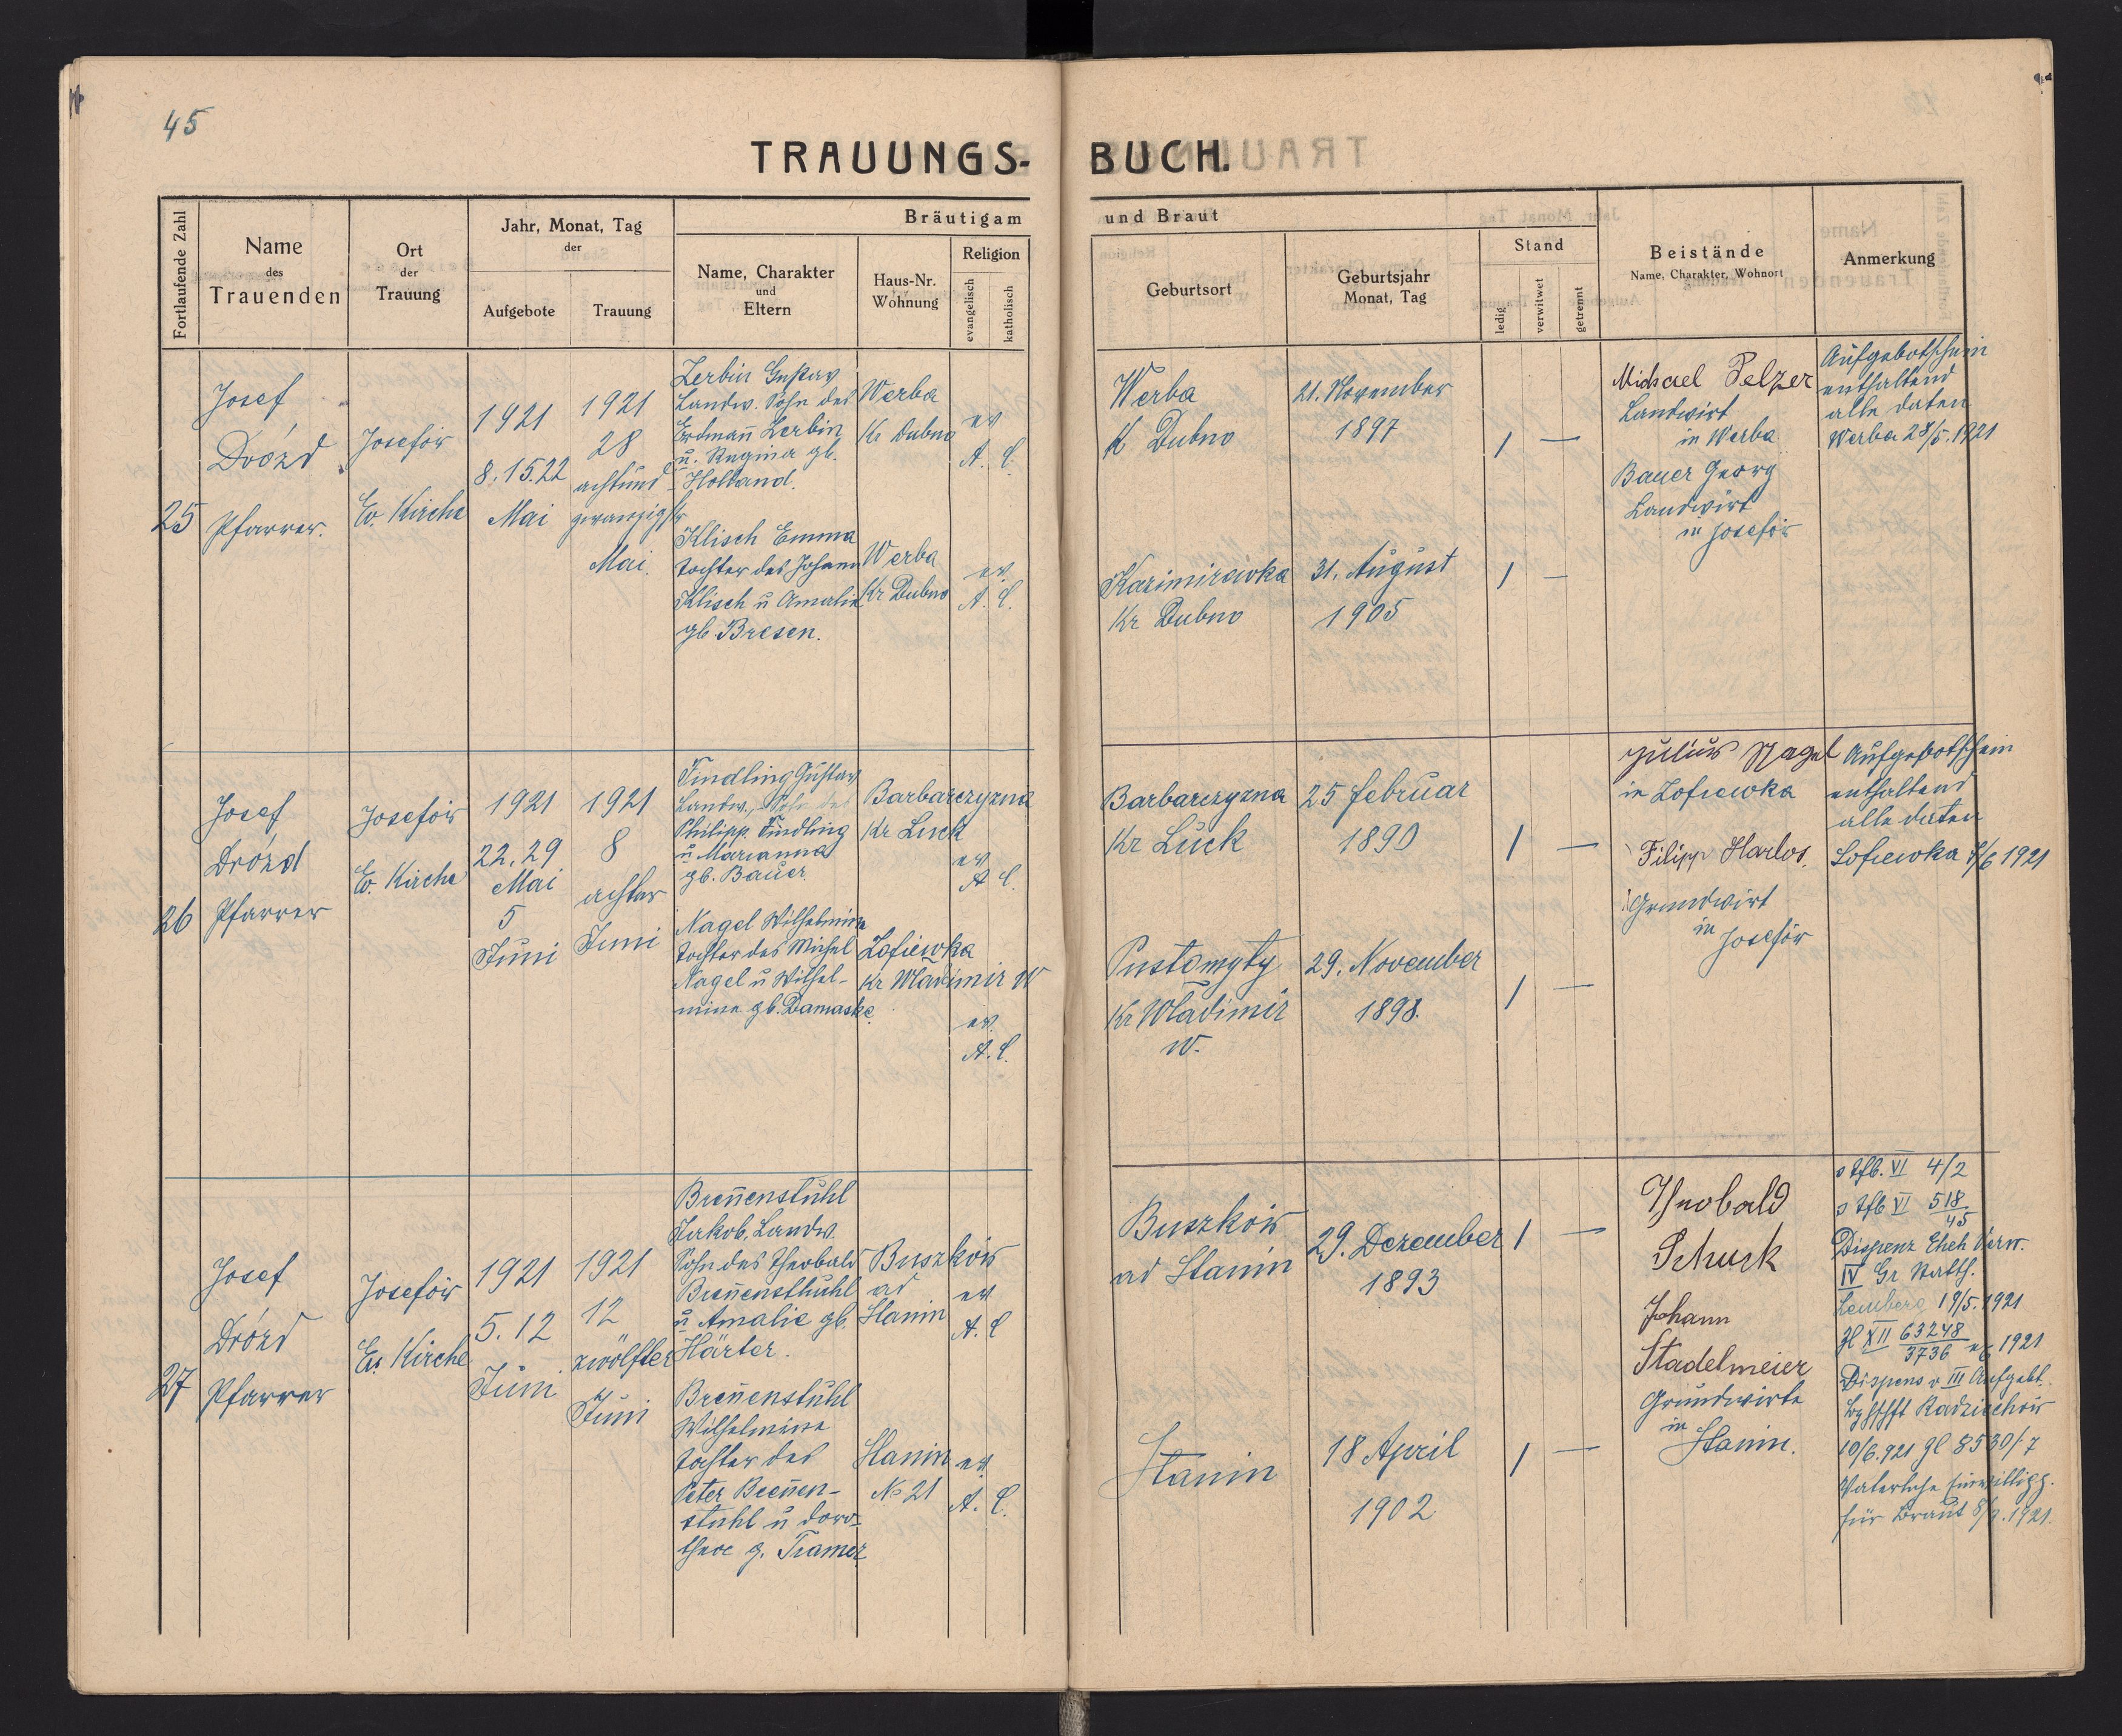 45
TRAUUNGS-BUCH.
Fortlaufende Zahl
Name
des
Trauenden
Ort
der
Trauung
Jahr, Monat, Tag
der
Aufgebote
Trauung
Bräutigam und Braut
Name, Charakter
und
Eltern
Haus-Nr.
Wohnung
Religion
evangelisch
katholisch
Geburtsort
Geburtsjahr
Monat, Tag
Stand
ledig
verwitwet
getrennt
Beistände
Name, Charakter, Wohnort
Anmerkung
25
Josef
Drózd
Pfarrer.
Josefów
Ev. Kirche
1921
8. 15. 22
Mai
1921
28
achtund
zwanzigster
Mai.
Zerbin Gustav
Landw. Sohn des
Erdman̄ Zerbin
u. Regina gb.
Holland.
Werba
Kr Dubno
ev
A. C.
Werba
Kr Dubno
21. November
1897
1 —
Michael Pelzer
Landwirt
in Werba
Bauer Georg
Landwirt
in Josefów
Aufgebotschein
enthaltend
alle daten
Werba 28/5. 1921
Klisch Emma
tochter des Johann
Klisch u Amalie
gb. Bresen.
Werba
Kr Dubno
ev.
A. C.
Kazimirówka
Kr Dubno
31. August
1905
1 —
26
Josef
Drózd
Pfarrer
Josefów
Ev. Kirche
1921
22. 29
Mai
5
Juni
1921
8
achter
Juni
Findling Gustav
Landw., Sohn des
Philipp Findling
u Marianna
gb. Bauer.
Barbarczyzna
Kr Luck
ev
A C.
Barbarczyzna
Kr Luck
25 februar
1890
1 —
Julius Nagel
in Zofiewka
Filipp Harlos.
Grundwirt
in
Josefów
Aufgebotschein
enthaltend
alle daten
Sofiewka 8/6 1921
Nagel Wilhelmine
tochter des Michel
Nagel u Wilhel-
mine gb. Damaske.
Zofiewka
Kr Wladimir W
ev.
A. C.
Pustomyty
Kr Wladimir
W.
29. November
1898.
1 —
27
Josef
Drózd
Pfarrer
Josefów
Ev. Kirche
1921
5. 12
Juni
1921
12
zwölfter
Juni
Bren̄enstuhl
Jakob, Landw.
Sohn des Theobald
Bren̄ensthuhl
u Amalie gb.
Härter.
Buszków
ad
Stanin
ev
A. C
Buszków
ad Stanin
29. Dezember
1893
1 —
Theobald
Schuck
Johann
Stadelmeier
Grundwirte
in
Stanin.
4/2
518
45
Dispenz Eheh Verw.
IV Gr Statth.
Lemberg 19/5. 1921
Zl XII 63248
3736
1921
Dispens v III Aufgebt.
Radziechów
10/6. 921 Zl 8530/7
Väterliche Einwilligg.
für Braut
1921.
Bren̄enstuhl
Wilhelmine
tochter des
Peter Bren̄en-
stuhl u doro-
thea g. Tramer
Stanin
No 21
ev
A. C.
Stanin
18 April
1902
1 —